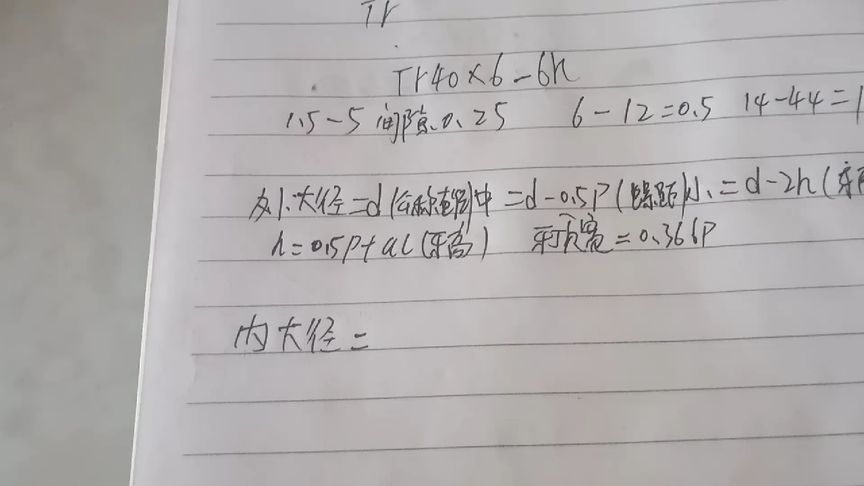 Tr
Tr40×6-6h
1.5-5 间隙0.25 6-12=0.5 14-44=1
外大径=d(公称直径)中=d-0.5P(螺距)小=d-2h(牙高
h=0.5P+ac(牙高) 牙顶宽=0.366P
内大径=